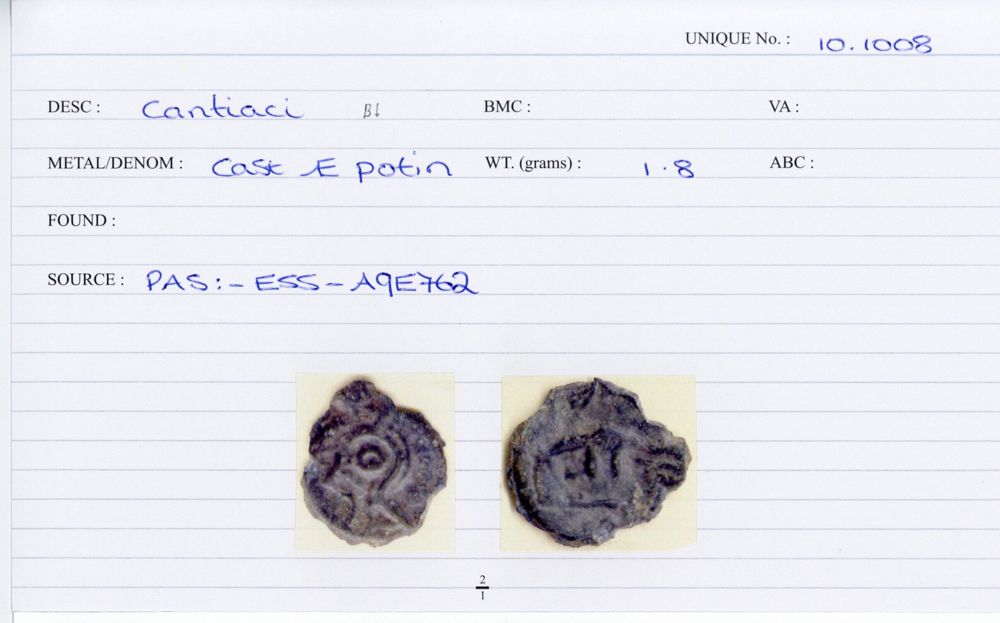 UNIQUE No. : 10.1008
DESC : Cantiaci B↓ BMC : VA :
METAL/DENOM : Cast Æ potin WT. (grams) : 1.8 ABC :
FOUND :
SOURCE : PAS:- ESS-A9E762
2
1